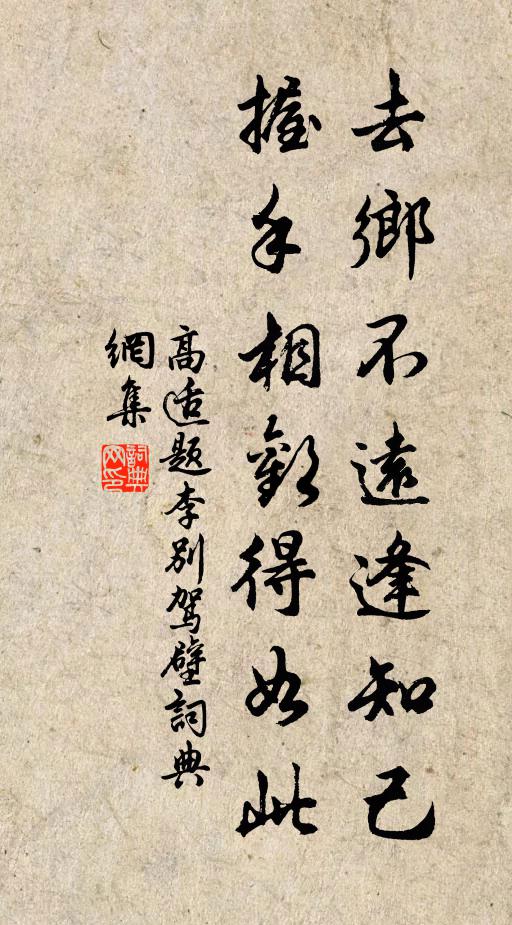 去鄉不遠逢知己
握手相歡得如此
高适題李別駕壁詞典
網集
詞典網印